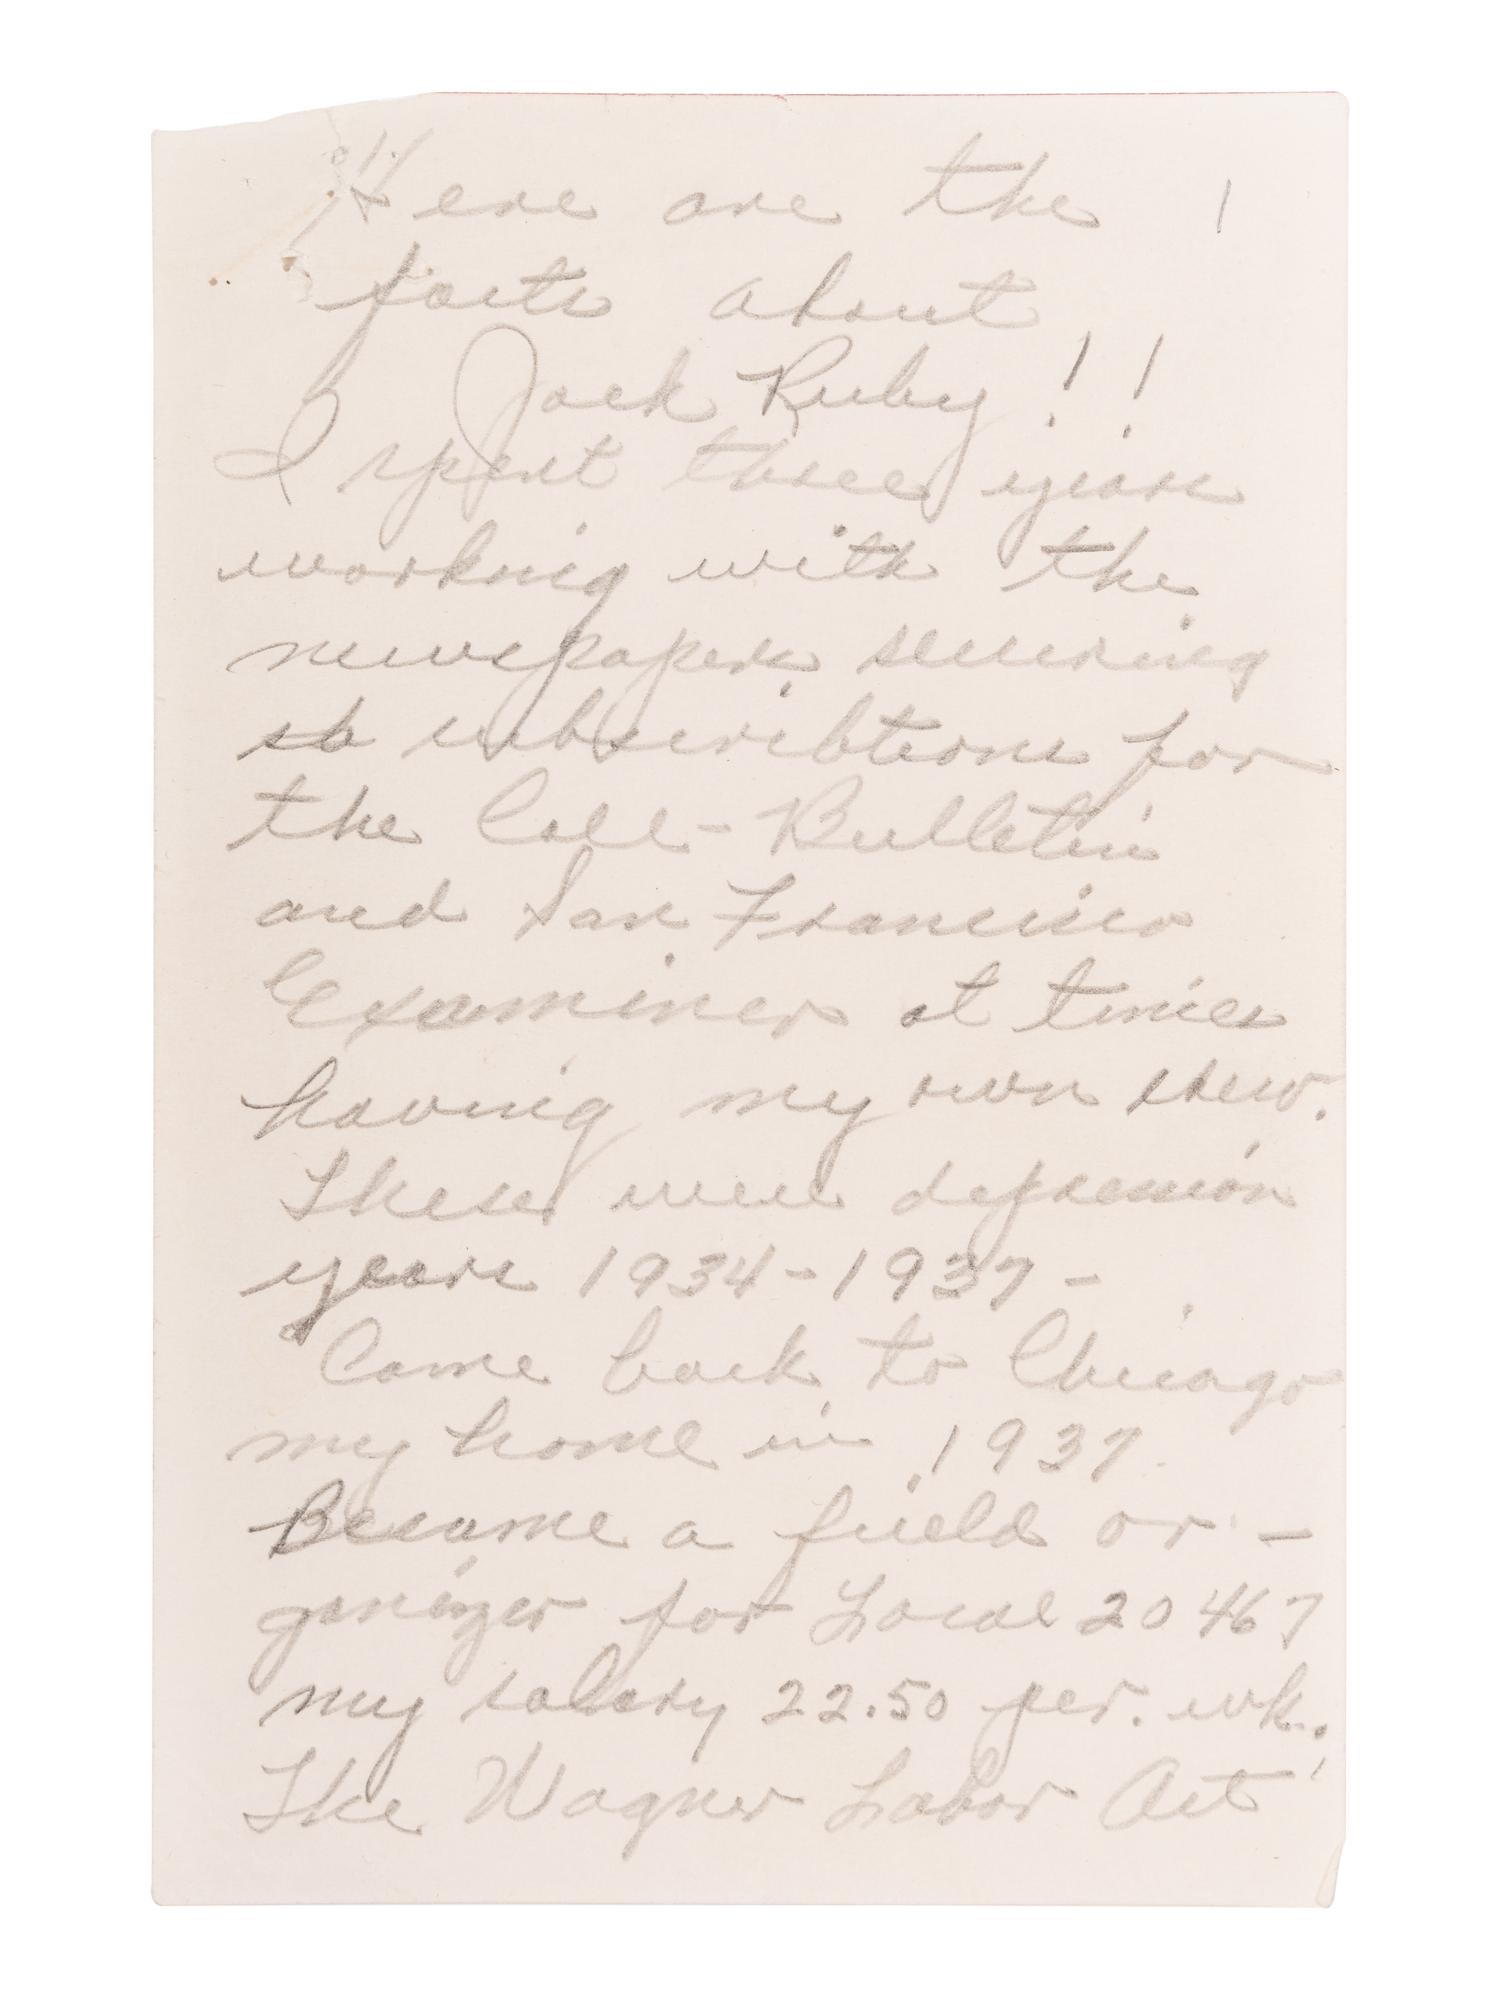 Here are the 1
facts about
Jack Ruby!!
I spent three years
working with the
newspapers securing
sb subscribtions for
the Call-Bulletin
and San Francisco
Examiner at times
having my own crew.
These were depression
years 1934-1937-
Came back to Chicago
my home in 1937
Became a field or-
ganizer for Local 20467
my salary 22.50 per. wk.
The Wagner Labor Act